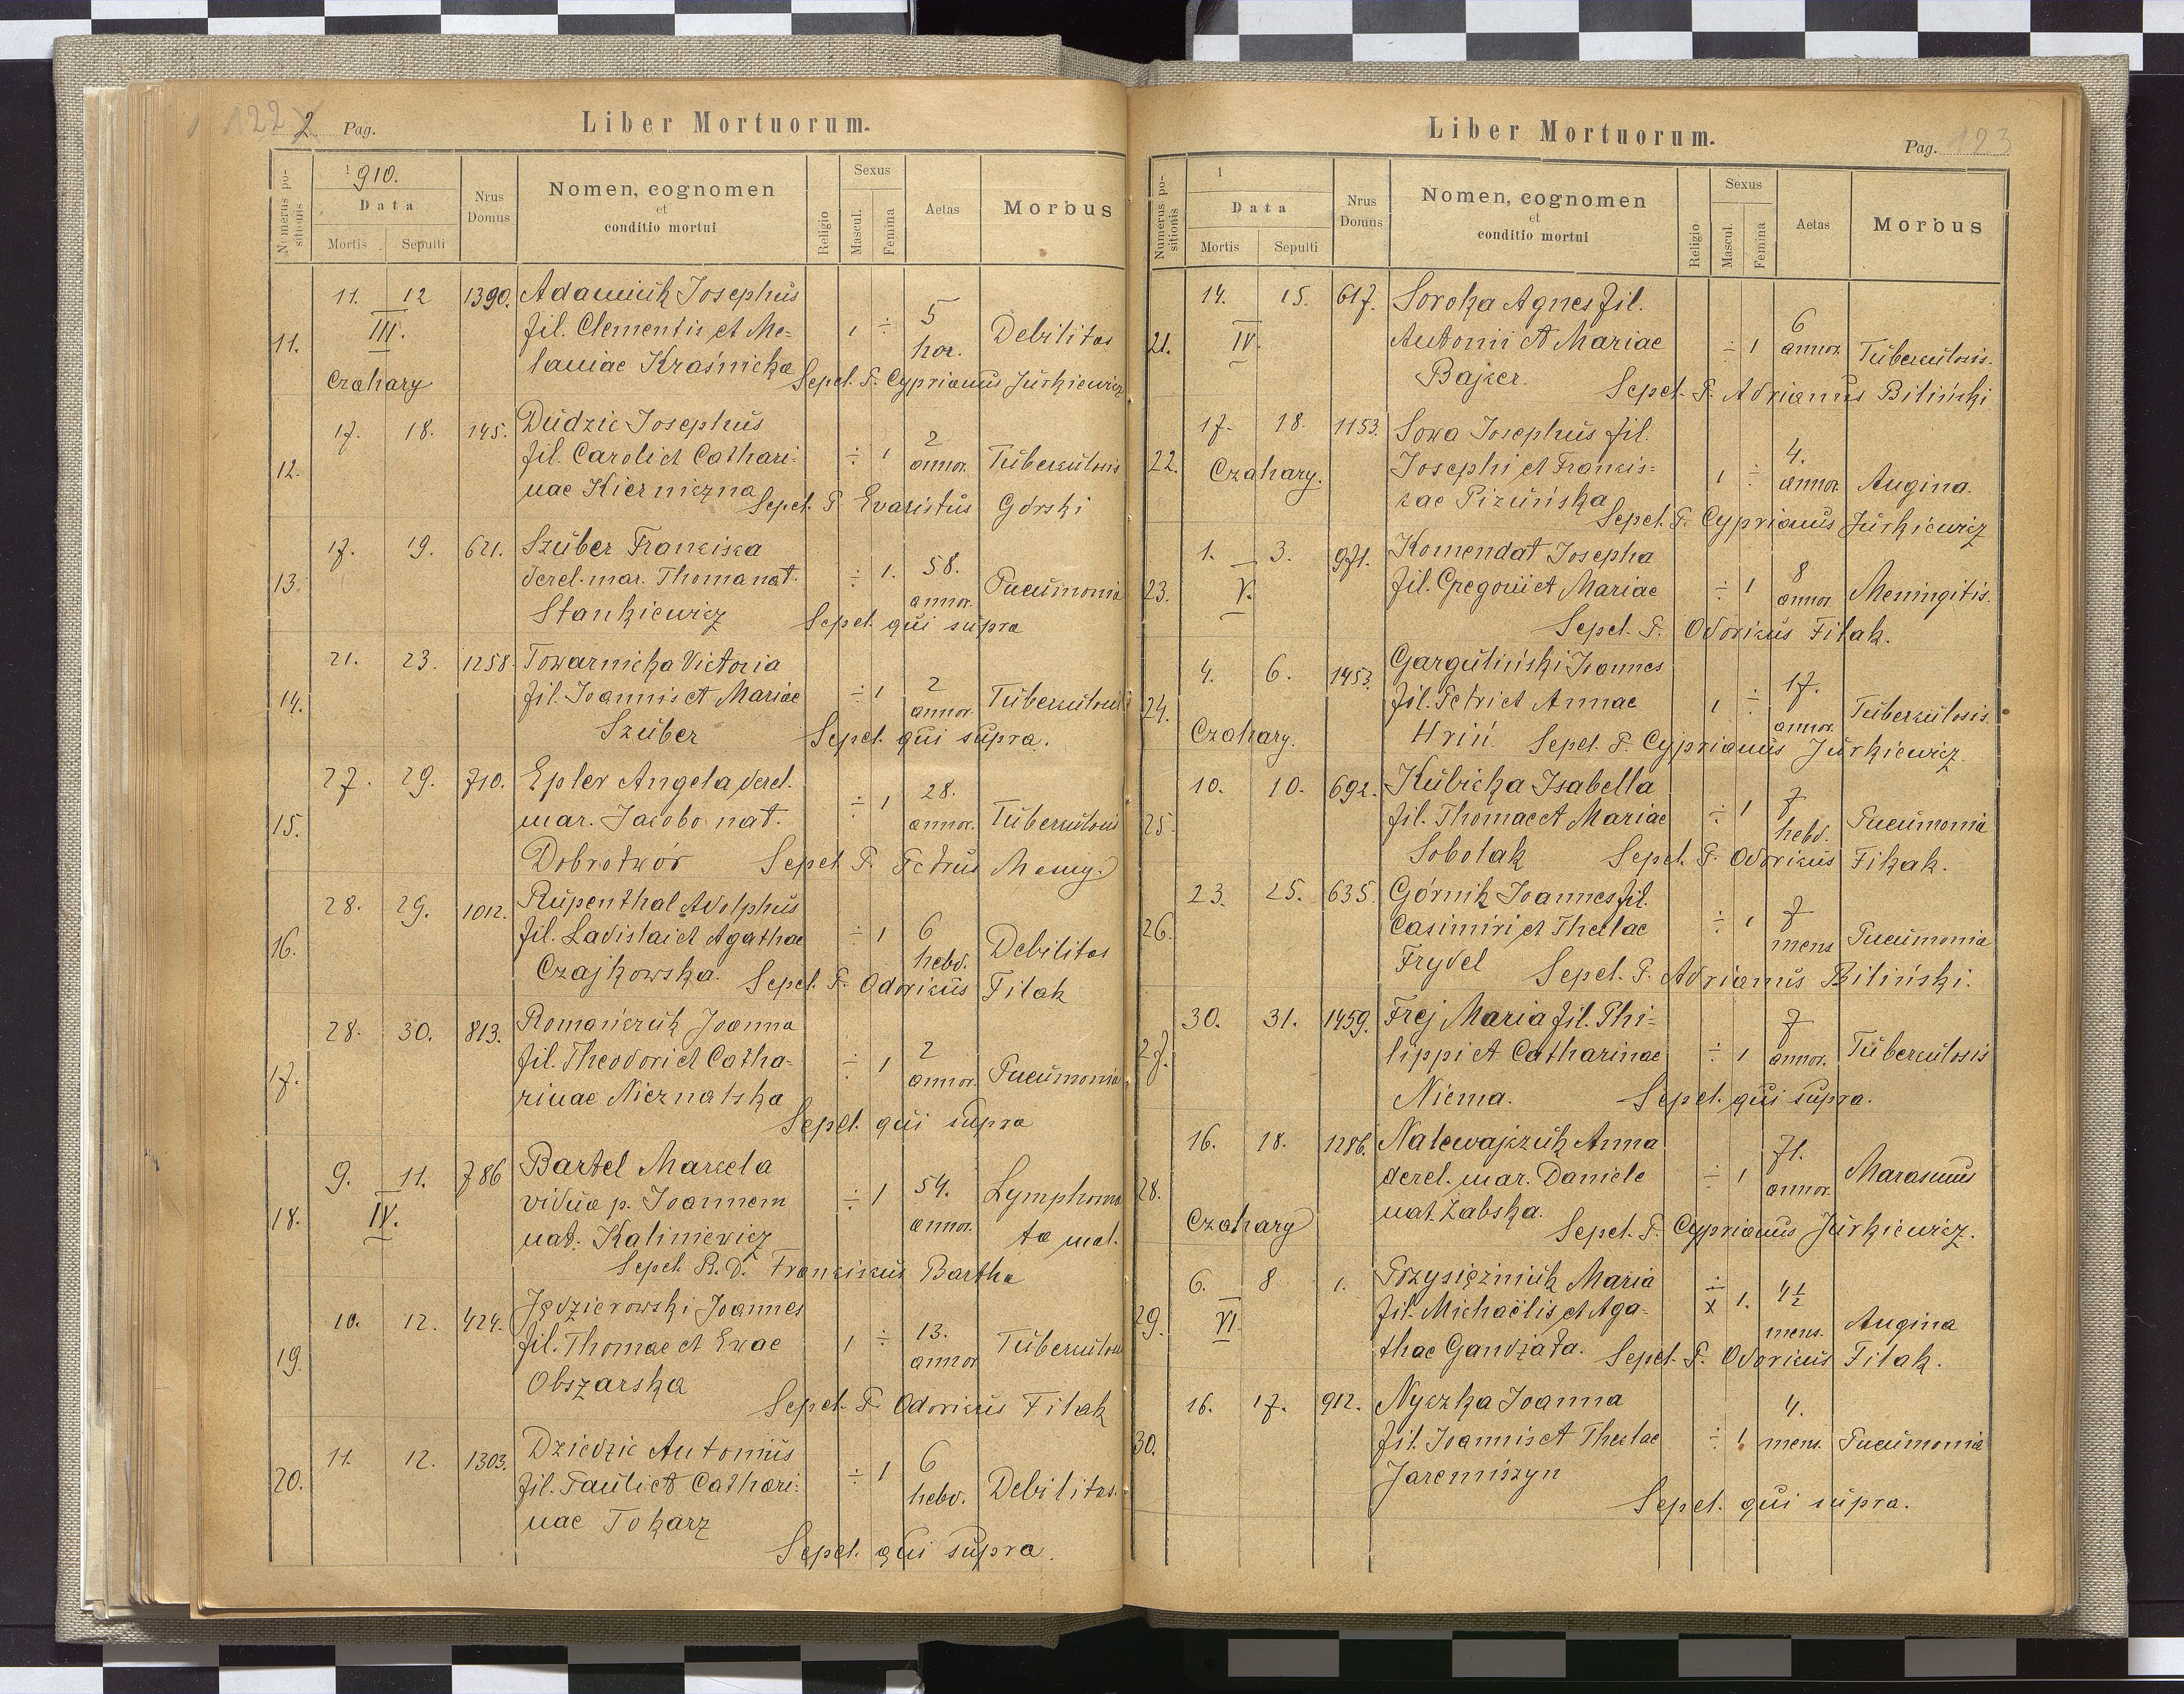 122
2 Pag.
Liber Mortuorum.
Numerus positionis
1910.
Data
Mortis
Sepulti
Nrus Domus
Nomen, cognomen
et
conditio mortui
Religio
Sexus
Mascul.
Femina
Aetas
Morbus
11. 12 1390. Adamiuk Josephus
III.
fil. Clementis et Me=
1 ÷ 5 hor. Debilitas
11.
laniae Kraśnicka
Czahary
Sepel. P. Cyprianus Jurkiewicz
17. 18. 145. Dudzic Josephus
12.
fil. Caroli et Cathari=
÷ 1 2 annor. Tuberculosis
nae Kierniczna
Sepel. P. Evaristus Górski
17. 19. 621. Szuber Francisca
13.
derel. mar. Thoma nat.
÷ 1. 58. annor. Pneumonia
Stankiewicz
Sepel. qui supra
21. 23. 1258. Towarnicka Victoria
14.
fil. Joannis et Mariae
÷ 1 2 annor. Tuberculosis
Szuber
Sepel. qui supra.
27. 29. 710. Epler Angela derel.
15.
mar. Jacobo nat.
÷ 1 28. annor. Tuberculosis
Dobrotwór
Sepel. P. Petrus
28. 29. 1012. Rupenthal Adolphus
16.
fil. Ladislai et Agathae
÷ 1 6 hebd. Debilitas
Czajkowska.
Sepel. P. Odoricus Fitak
28. 30. 813. Romańczuk Joanna
17.
fil. Theodori et Catha-
÷ 1 2 annor. Pneumonia
rinae Nieznatska
Sepel. qui supra
9. 11. 786 Bartel Marcela
IV.
18.
vidua p. Joannem
÷ 1 54. annor. Lymphoma
ta mal.
nat. Kaliniewicz
Sepel. R. D. Franciscus Bartha
10. 12. 424. Jędzierowski Joannes
19.
fil. Thomae et Evae
1 ÷ 13. annor Tuberculosis
Obszarska
Sepel. P. Odoricus Fitak
11. 12. 1303. Dziedzic Antonius
20.
fil. Pauli et Cathari=
÷ 1 6 hebd. Debilitas.
nae Tokarz
Sepel. qui supra.
Liber Mortuorum.
Pag. 123
Numerus positionis
1
Data
Mortis
Sepulti
Nrus Domus
Nomen, cognomen
et
conditio mortui
Religio
Sexus
Mascul.
Femina
Aetas
Morbus
14. 15. 617. Soroka Agnes fil.
21.
IV.
Antonii et Mariae
÷ 1 6 annor. Tuberculosis.
Bajcer.
Sepel. P. Adrianus Biliński
17. 18. 1153. Sowa Josephus fil.
22.
Czahary.
Josephi et Francis=
1 ÷ 4. annor. Angina.
cae Pizuńska
Sepel. P. Cyprianus Jurkiewicz
1. 3. 971. Komendat Josepha
23.
V.
fil. Gregorii et Mariae
÷ 1 8 annor. Meningitis.
Sepel. P. Odoricus Fitak.
4. 6. 1453. Garguliński Joannes
24.
fil. Petri et Annae
1 ÷ 17. annor. Tuberculosis.
Czahary.
Hriń.
Sepel. P. Cyprianus Jurkiewicz.
10. 10. 692. Kubicka Isabella
25.
fil. Thomae et Mariae
÷ 1 7 hebd. Pneumonia
Sobolak
Sepel. P. Odoricus Fitak.
23. 25. 635. Górnik Joannes fil.
26.
Casimiri et Theclae
÷ 1 7 mens Pneumonia
Frydel
Sepel. P. Adrianus Biliński.
30. 31. 1459. Frej Maria fil. Phi=
27.
lippi et Catharinae
÷ 1 7 annor. Tuberculosis
Niema.
Sepel. qui supra.
16. 18. 1286. Nalewajczuk Anna
28.
derel. mar. Daniele
÷ 1 71. annor. Marasmus
Czahary
nat. Żabska.
Sepel. P. Cyprianus Jurkiewicz.
6. 8 1. Przysiężniuk Maria
29.
VI.
fil. Michaëlis et Aga-
÷ x 1. 4½ mens. Angina
thae Gandziała.
Sepel. P. Odoricus Fitak.
16. 17. 912. Nyczka Joanna
30.
fil. Joannis et Theclae
÷ 1 4. mens. Pneumonia
Jaremiszyn
Sepel. qui supra.